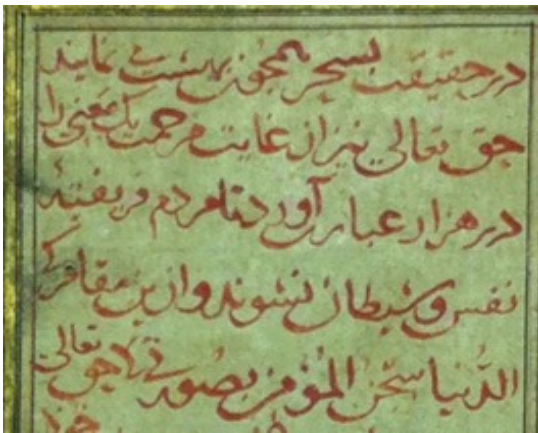 در حقیقت بسحر همچون بهشت می نمایند
حق تعالی نیز از غایت مرحمت یک معنی را
در هزار عبارت آورد تا مردم فریفتهٔ
نفس و شیطان نشوند و ازین مقام که
الدُّنیا سجن المؤمن بصورتی تا حق تعالی